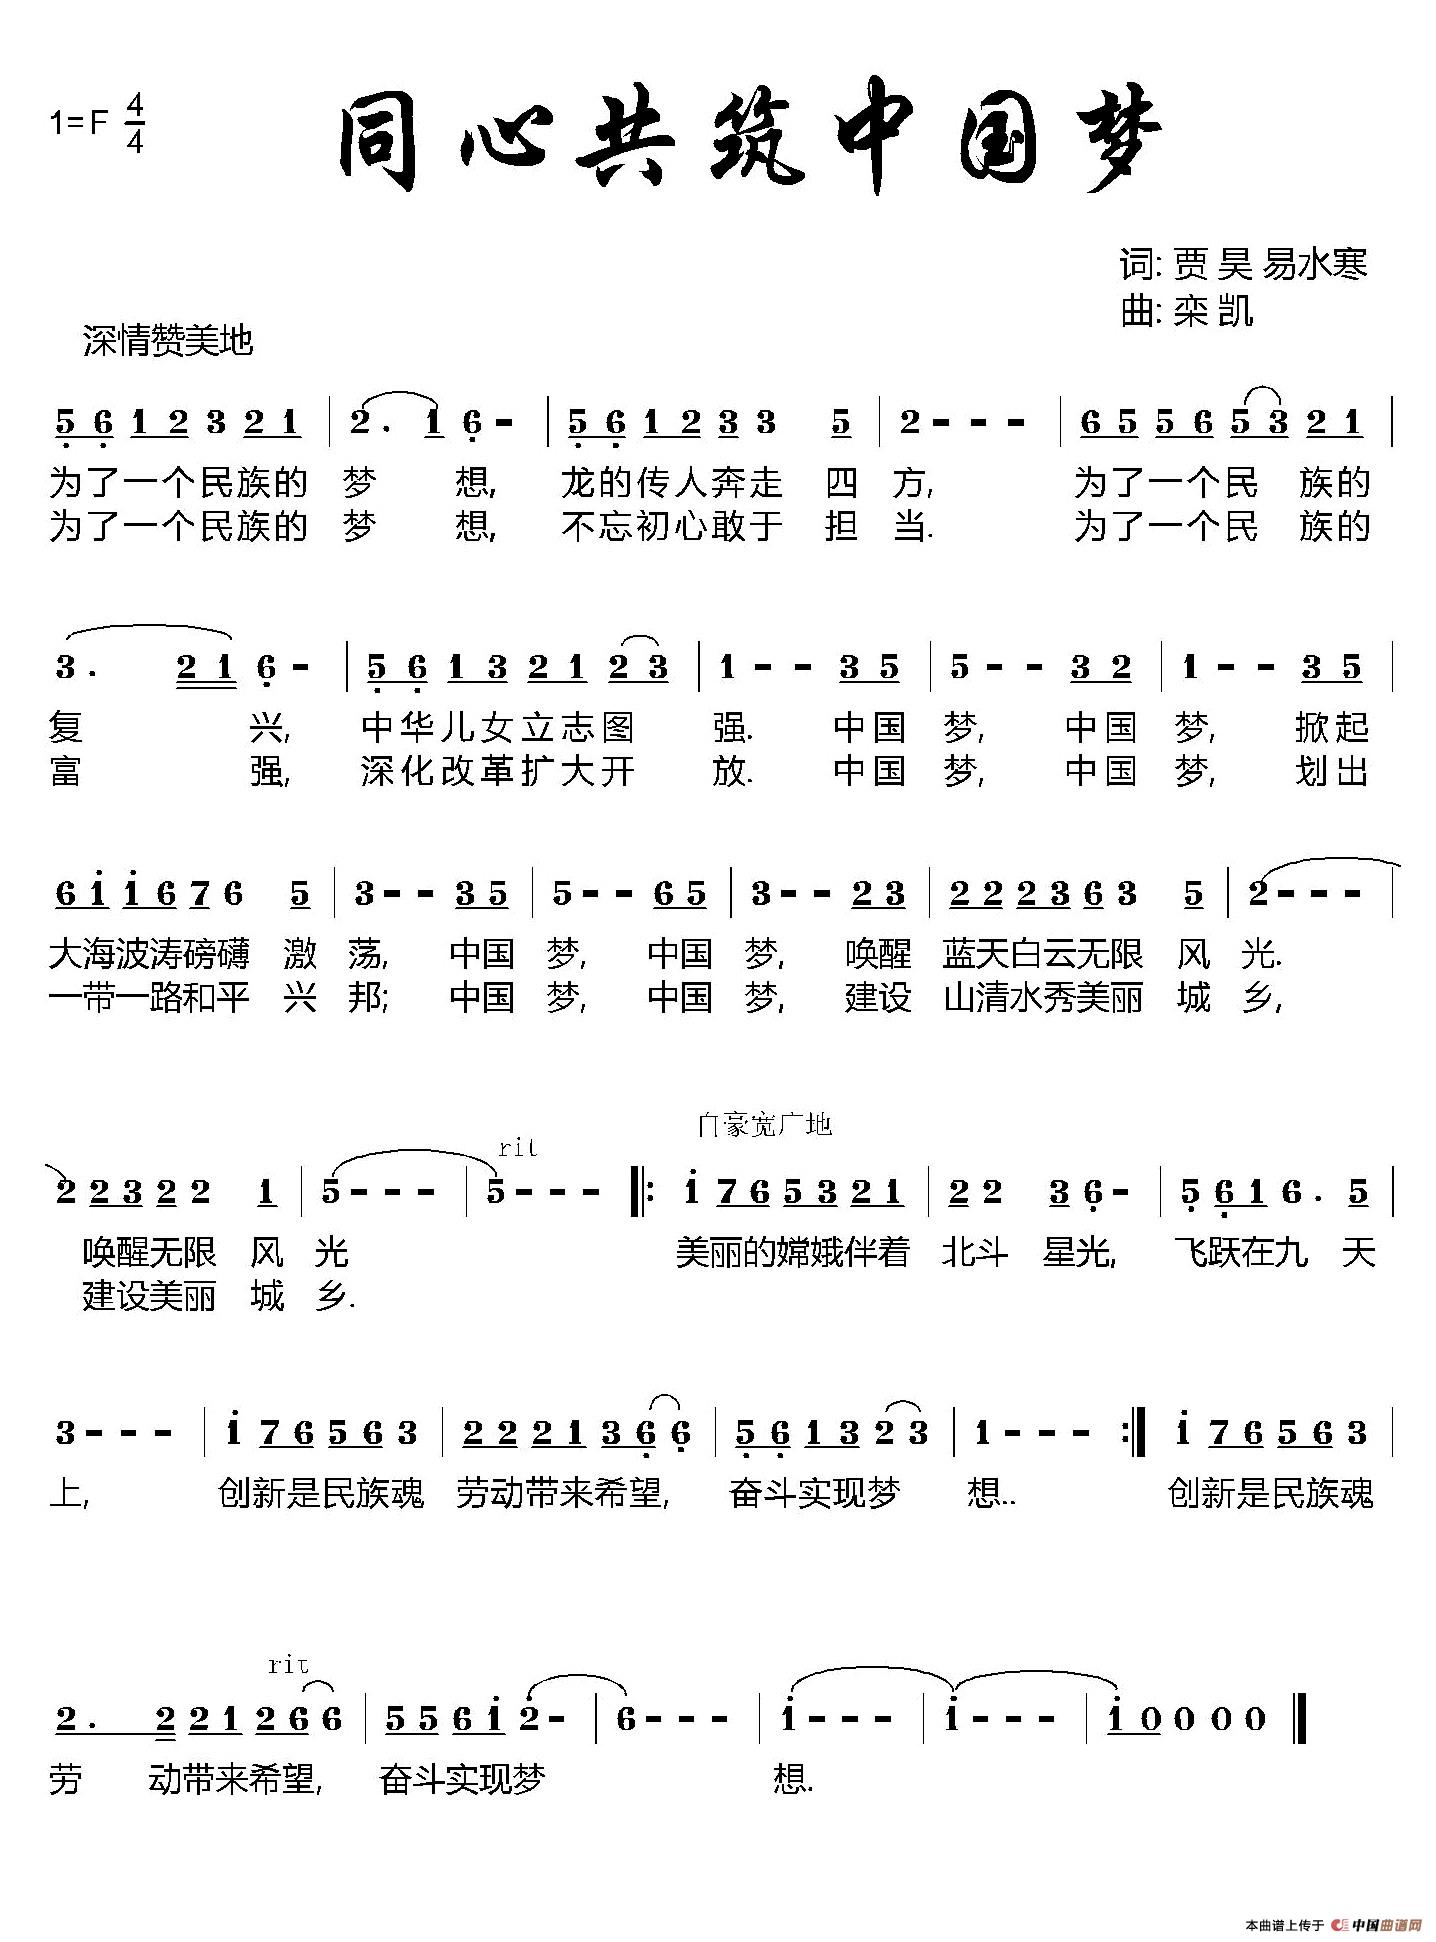 1=F 4/4
同心共筑中国梦
词: 贾 昊 易水寒
曲: 栾 凯
深情赞美地
5 6 1 2 3 2 1 | 2 . 1 6 - | 5 6 1 2 3 3 5 | 2 - - - | 6 5 5 6 5 3 2 1 |
为了一个民族的 梦 想, 龙的传人奔走 四 方, 为了一个民 族的
为了一个民族的 梦 想, 不忘初心敢于 担 当. 为了一个民 族的
3 . 2 1 6 - | 5 6 1 3 2 1 2 3 | 1 - - 3 5 | 5 - - 3 2 | 1 - - 3 5 |
复 兴, 中华儿女立志图 强. 中国 梦, 中国 梦, 掀起
富 强, 深化改革扩大开 放. 中国 梦, 中国 梦, 划出
6 1 1 6 7 6 5 | 3 - - 3 5 | 5 - - 6 5 | 3 - - 2 3 | 2 2 2 3 6 3 5 | 2 - - - |
大海波涛磅礴 激 荡, 中国 梦, 中国 梦, 唤醒 蓝天白云无限 风 光.
一带一路和平 兴 邦; 中国 梦, 中国 梦, 建设 山清水秀美丽 城 乡,
rit
自豪宽广地
2 2 3 2 2 1 | 5 - - - | 5 - - - |: 1 7 6 5 3 2 1 | 2 2 3 6 - | 5 6 1 6 . 5 |
唤醒无限 风 光 美丽的嫦娥伴着 北斗 星光, 飞跃在九 天
建设美丽 城 乡.
3 - - - | 1 7 6 5 6 3 | 2 2 2 1 3 6 6 | 5 6 1 3 2 3 | 1 - - - :| 1 7 6 5 6 3 |
上, 创新是民族魂 劳动带来希望, 奋斗实现梦 想.. 创新是民族魂
rit
2 . 2 2 1 2 6 6 | 5 5 6 1 2 - | 6 - - - | 1 - - - | 1 - - - | 1 0 0 0 0 ‖
劳 动带来希望, 奋斗实现梦 想.
本曲谱上传于 中国曲谱网